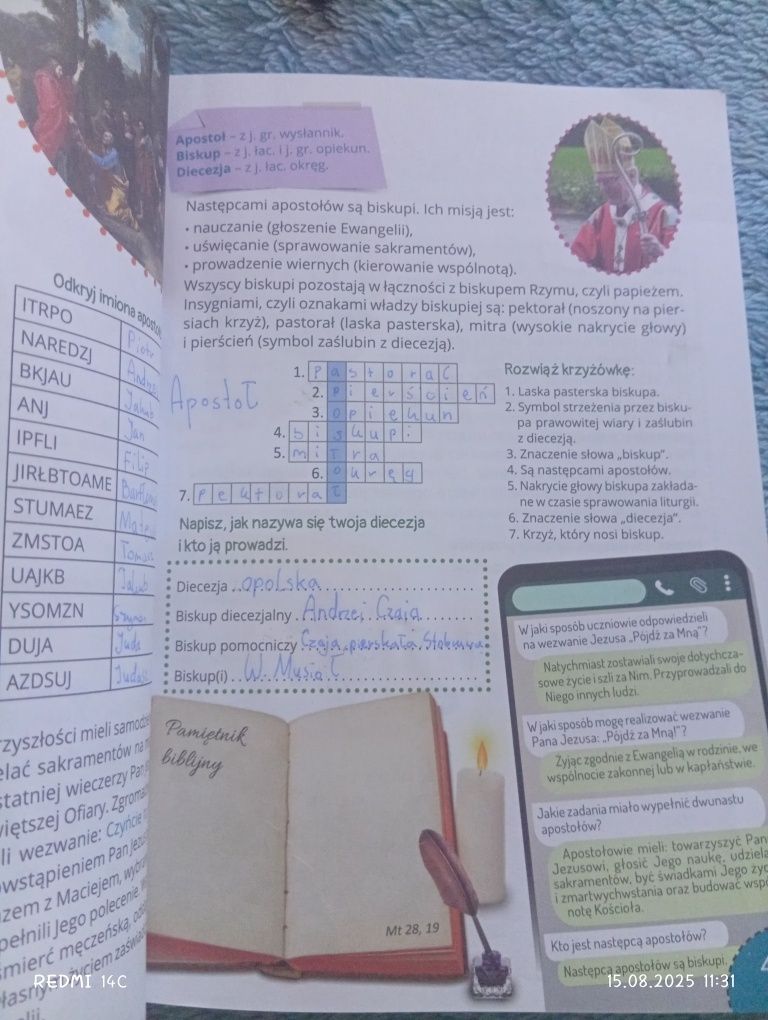 Odkryj imiona aposto
ITRPO Piotr
NAREDZJ Andrzej
BKJAU Jakub
ANJ Jan
IPFLI Filip
JIRŁBTOAME
STUMAEZ
ZMSTOA
UAJKB Jakub
YSOMZN
DUJA Juda
AZDSUJ
rzyszłości mieli samodzie
elać sakramentów na
statniej wieczerzy Pan
więtszej Ofiary. Zgroma
li wezwanie: Czyńcie
wstąpieniem Pan Jezu
zem z Maciejem, wybra
pełnili Jego polecenie.
śmierć męczeńską, odd
własnym życiem zaświad
elii.
Apostoł – z j. gr. wysłannik.
Biskup – z j. łac. i j. gr. opiekun.
Diecezja – z j. łac. okręg.
Następcami apostołów są biskupi. Ich misją jest:
• nauczanie (głoszenie Ewangelii),
• uświęcanie (sprawowanie sakramentów),
• prowadzenie wiernych (kierowanie wspólnotą).
Wszyscy biskupi pozostają w łączności z biskupem Rzymu, czyli papieżem.
Insygniami, czyli oznakami władzy biskupiej są: pektorał (noszony na pier-
siach krzyż), pastorał (laska pasterska), mitra (wysokie nakrycie głowy)
i pierścień (symbol zaślubin z diecezją).
Apostoł
1. pastorał
2. pierścień
3. opiekun
4. biskupi
5. mitra
6. okręg
7. pektorał
Rozwiąż krzyżówkę:
1. Laska pasterska biskupa.
2. Symbol strzeżenia przez bisku-
pa prawowitej wiary i zaślubin
z diecezją.
3. Znaczenie słowa „biskup”.
4. Są następcami apostołów.
5. Nakrycie głowy biskupa zakłada-
ne w czasie sprawowania liturgii.
6. Znaczenie słowa „diecezja”.
7. Krzyż, który nosi biskup.
Napisz, jak nazywa się twoja diecezja
i kto ją prowadzi.
Diecezja opolska
Biskup diecezjalny Andrzej Czaja
Biskup pomocniczy Czaja
Biskup(i) W. Musioł
Pamiętnik
biblijny
Mt 28, 19
W jaki sposób uczniowie odpowiedzieli
na wezwanie Jezusa „Pójdź za Mną”?
Natychmiast zostawiali swoje dotychcza-
sowe życie i szli za Nim. Przyprowadzali do
Niego innych ludzi.
W jaki sposób mogę realizować wezwanie
Pana Jezusa: „Pójdź za Mną!”?
Żyjąc zgodnie z Ewangelią w rodzinie, we
wspólnocie zakonnej lub w kapłaństwie.
Jakie zadania miało wypełnić dwunastu
apostołów?
Apostołowie mieli: towarzyszyć Pan
Jezusowi, głosić Jego naukę, udziela
sakramentów, być świadkami Jego życ
i zmartwychwstania oraz budować wspó
notę Kościoła.
Kto jest następcą apostołów?
Następcą apostołów są biskupi.
REDMI 14C
15.08.2025 11:31